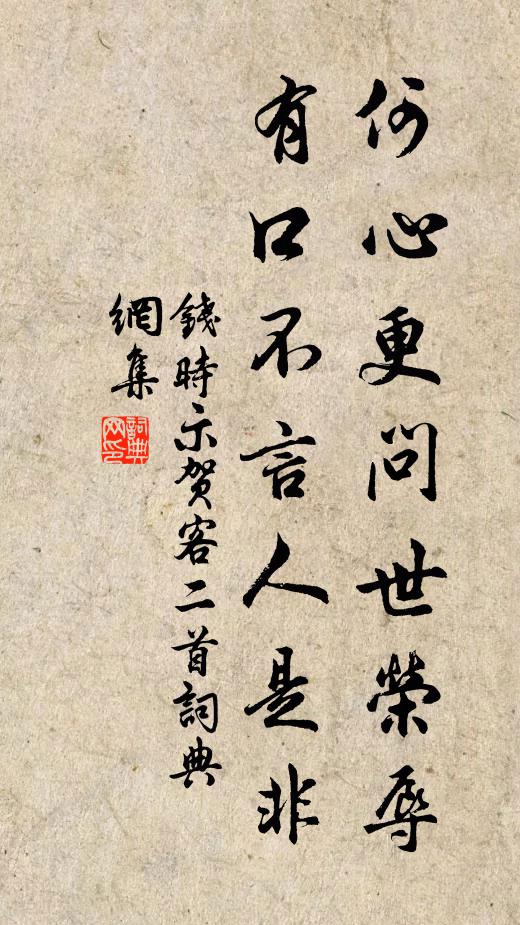 何心更问世榮辱
有口不言人是非
錢時示贺客二首詞典
網集
詞典
网印